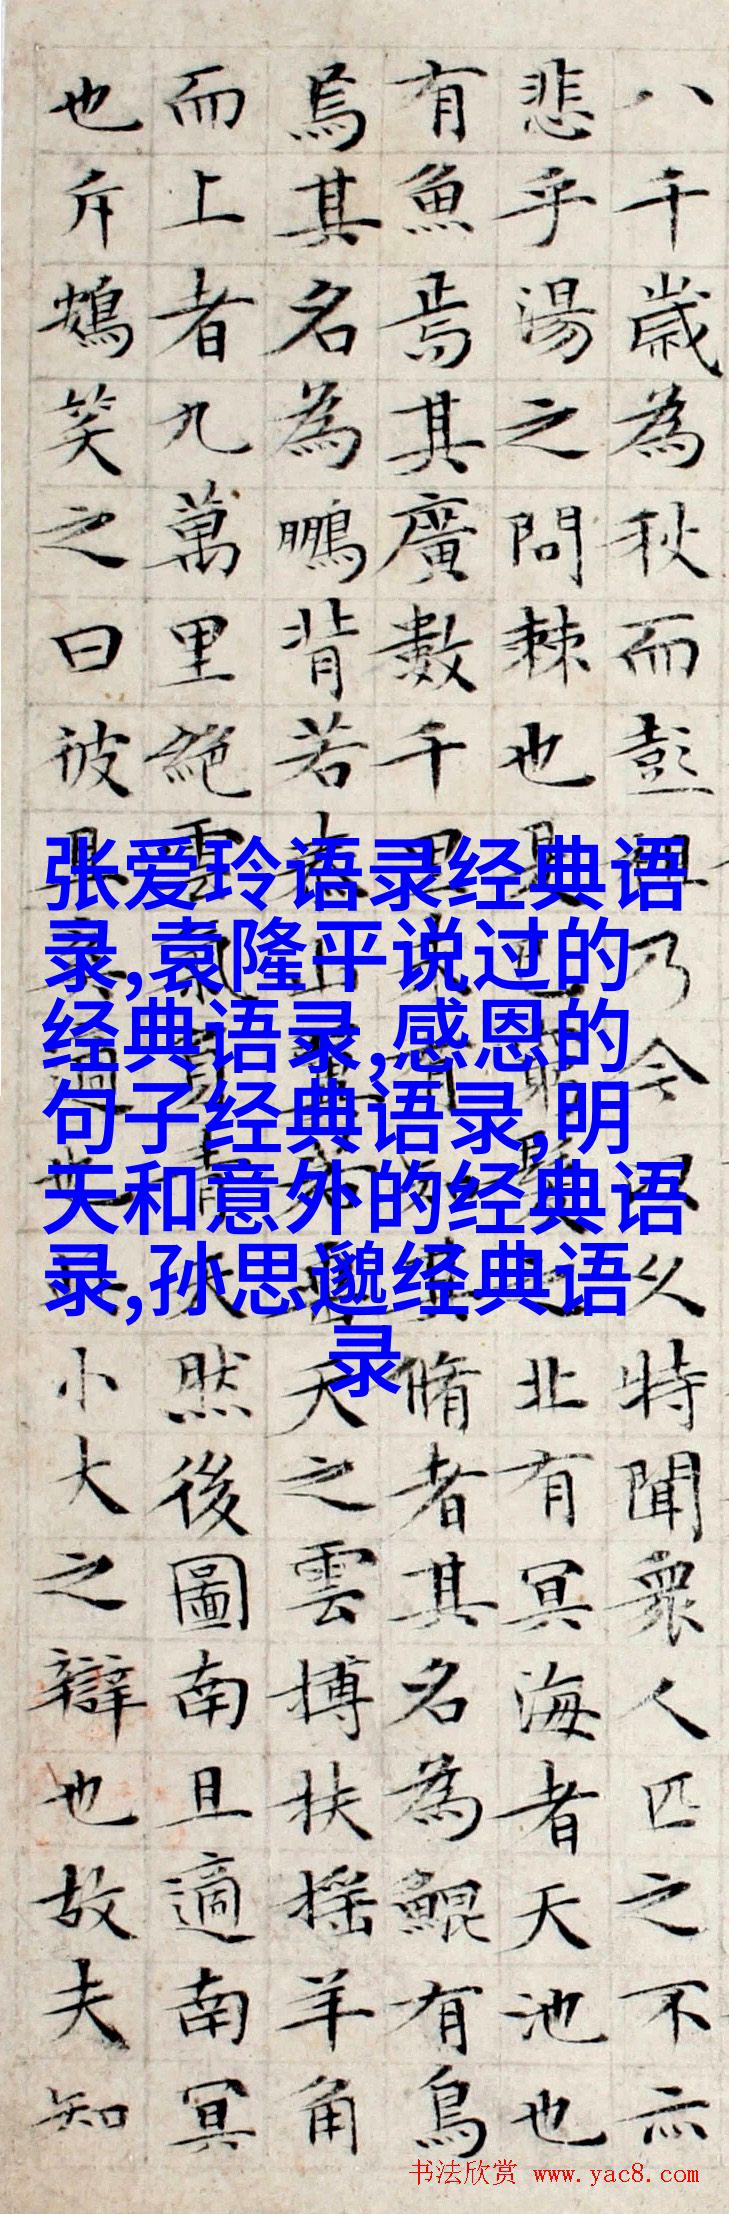 八千歲為秋而彭乃今以久特聞衆人匹之不亦
悲乎湯之問棘也是已窮髮之北有冥海者天池也
有魚焉其廣數千里未有知其脩者其名為鯤有鳥
焉其名為鵬背若泰山翼若垂天之雲搏扶搖羊角
而上者九萬里絕雲氣負青天然後圖南且適南冥
也斥鴳笑之曰彼且奚適也小大之辯也故夫知
张爱玲语录经典语
录,袁隆平说过的
经典语录,感恩的
句子经典语录,明
天和意外的经典语
录,孙思邈经典语
录
书法欣赏 www.yac8.com